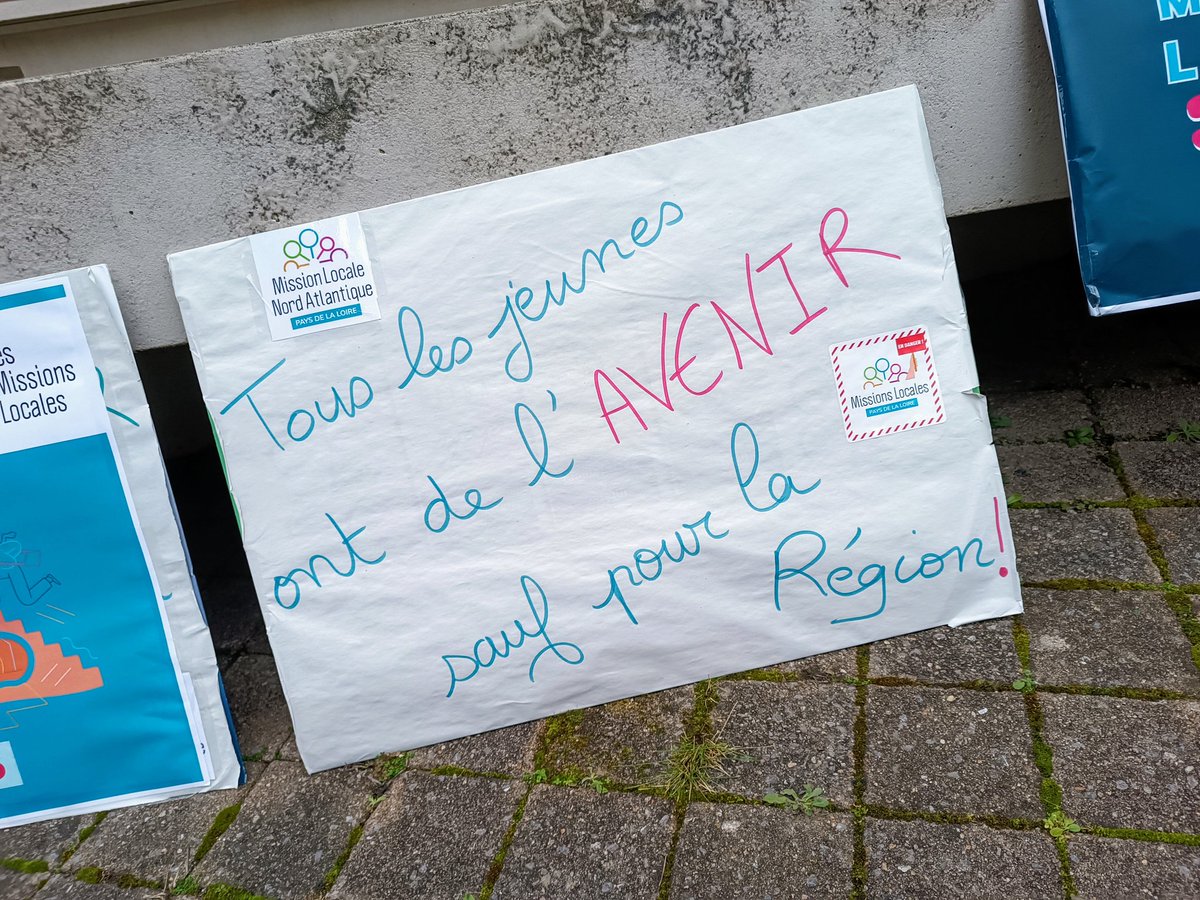 Mission Locale
Nord Atlantique
PAYS DE LA LOIRE
Tous les jeunes
ont de l'AVENIR
sauf pour la
Région!
EN DANGER !
Missions Locales
PAYS DE LA LOIRE
es
Missions
Locales
M
L